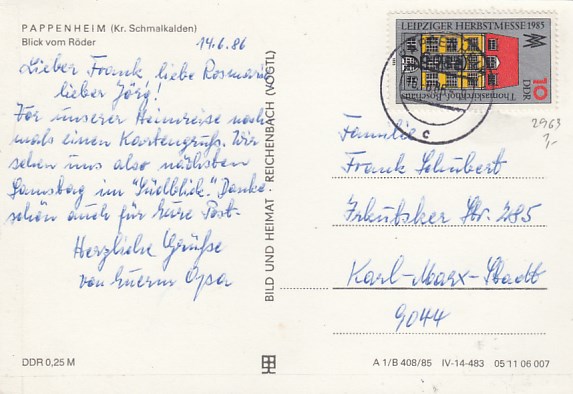 PAPPENHEIM (Kr. Schmalkalden)
Blick vom Röder
14.6.86
Lieber Frank, liebe Rosmarie
lieber Jörg!
Vor unserer Heimreise noch
mals einen Kartengruß. Wir
sehen uns also nächsten
Samstag im "Südblick". Danke
schön auch für Eure Post.
Herzliche Grüße
von Euerm Opa
DDR 0,25 M
BILD UND HEIMAT REICHENBACH (VOGTL)
LEIPZIGER HERBSTMESSE 1985
Thomaskirchhof · Bosehaus
10
DDR
c
2963
1,-
Familie
Frank Schubert
Irkutsker Str. 285
Karl-Marx-Stadt
9044
A 1/B 408/85 IV-14-483 05 11 06 007